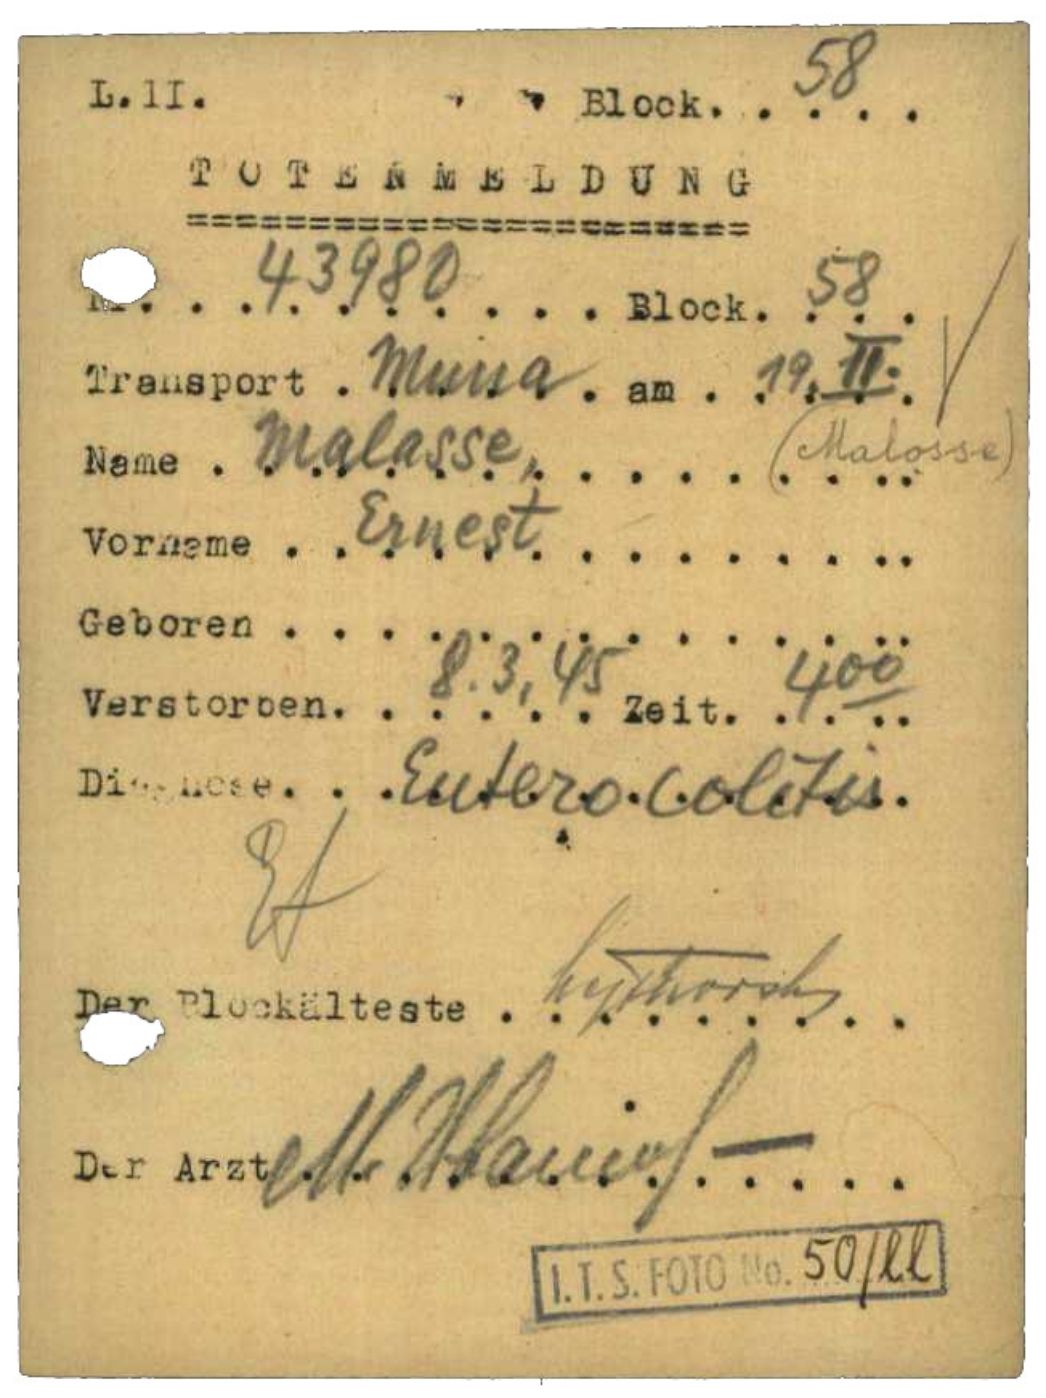 L.II. Block. . 58 . .
TOTENMELDUNG
=======================
Nr. . . 43980 . . . Block. 58 . .
Transport . Muna . am . 19. II.
Name . Malasse, (Malosse)
Vorname . . Ernest
Geboren . . . . . . . . . . . . .
Verstorben. . 8.3,45 Zeit. 4 00
Diagnose. . . Entero colitis.
Der Blockälteste . . . . . . . . .
Der Arzt . . . . . . . . . .
I.T.S. FOTO No. 50/ll